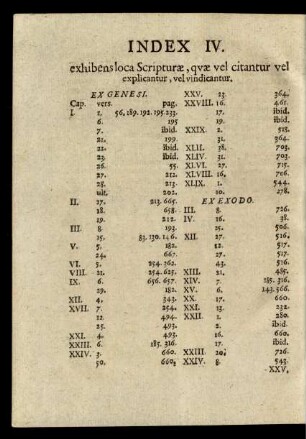 INDEX IV.
exhibens loca Scripturæ, qvæ vel citantur vel
explicantur, vel vindicantur.
EX GENESI.
Cap. vers. pag.
I. 1. 56, 189. 192. 195. 233.
6. 195
7. ibid.
21. 199.
22. ibid.
23. ibid.
26. 55.
27. 212.
28. 213.
ult. 202.
II. 17. 213. 665.
18. 658.
19. 212.
III. 8. 193.
15. 83. 130. 146.
V. 5. 182.
24. 667.
VI. 5. 254. 262.
VIII. 21. 254. 625.
IX. 6. 656. 657.
29. 182.
XII. 4. 343.
XVII. 7. 254.
12. 494.
25. 493.
XXI. 4. 494.
XXIII. 6. 185. 316.
XXIV. 3. 660.
50. 660.
XXV. 23. 364.
XXVIII. 16. 461.
17. ibid.
19. ibid.
XXIX. 2. 518.
31. ibid.
XLII. 38. 703.
XLIV. 31. 703.
XLVI. 27. 715.
XLVIII. 16. 706.
XLIX. 1. 544.
10. 278.
EX EXODO.
III. 8. 726.
IV. 16. 38.
25. 506.
XII. 27. 516.
52. 517.
43. 516.
XIII. 21. 485.
XIV. 7. 185. 316.
XV. 6. 143. 566.
XX. 17. 660.
XXI. 13. 232.
XXII. 1. 280.
2. ibid.
16. 660.
17. ibid.
XXIII. 20. 726.
XXIV. 8. 543.
XXV.